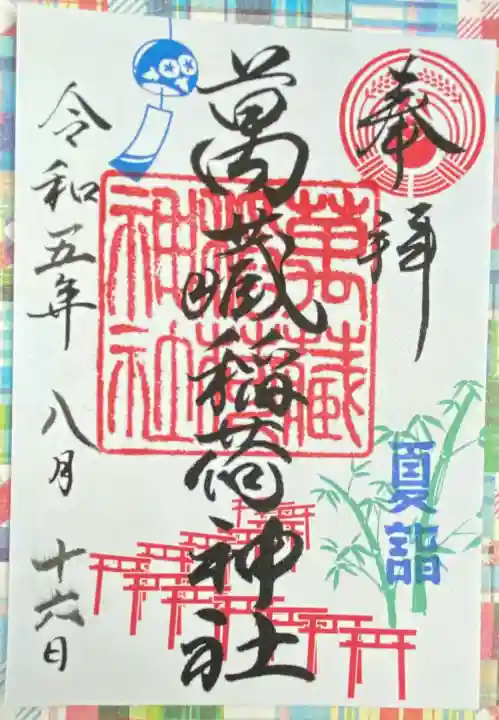 奉拝
夏詣
萬蔵稲荷神社
萬藏
稲荷
神社
令和五年 八月 十六日